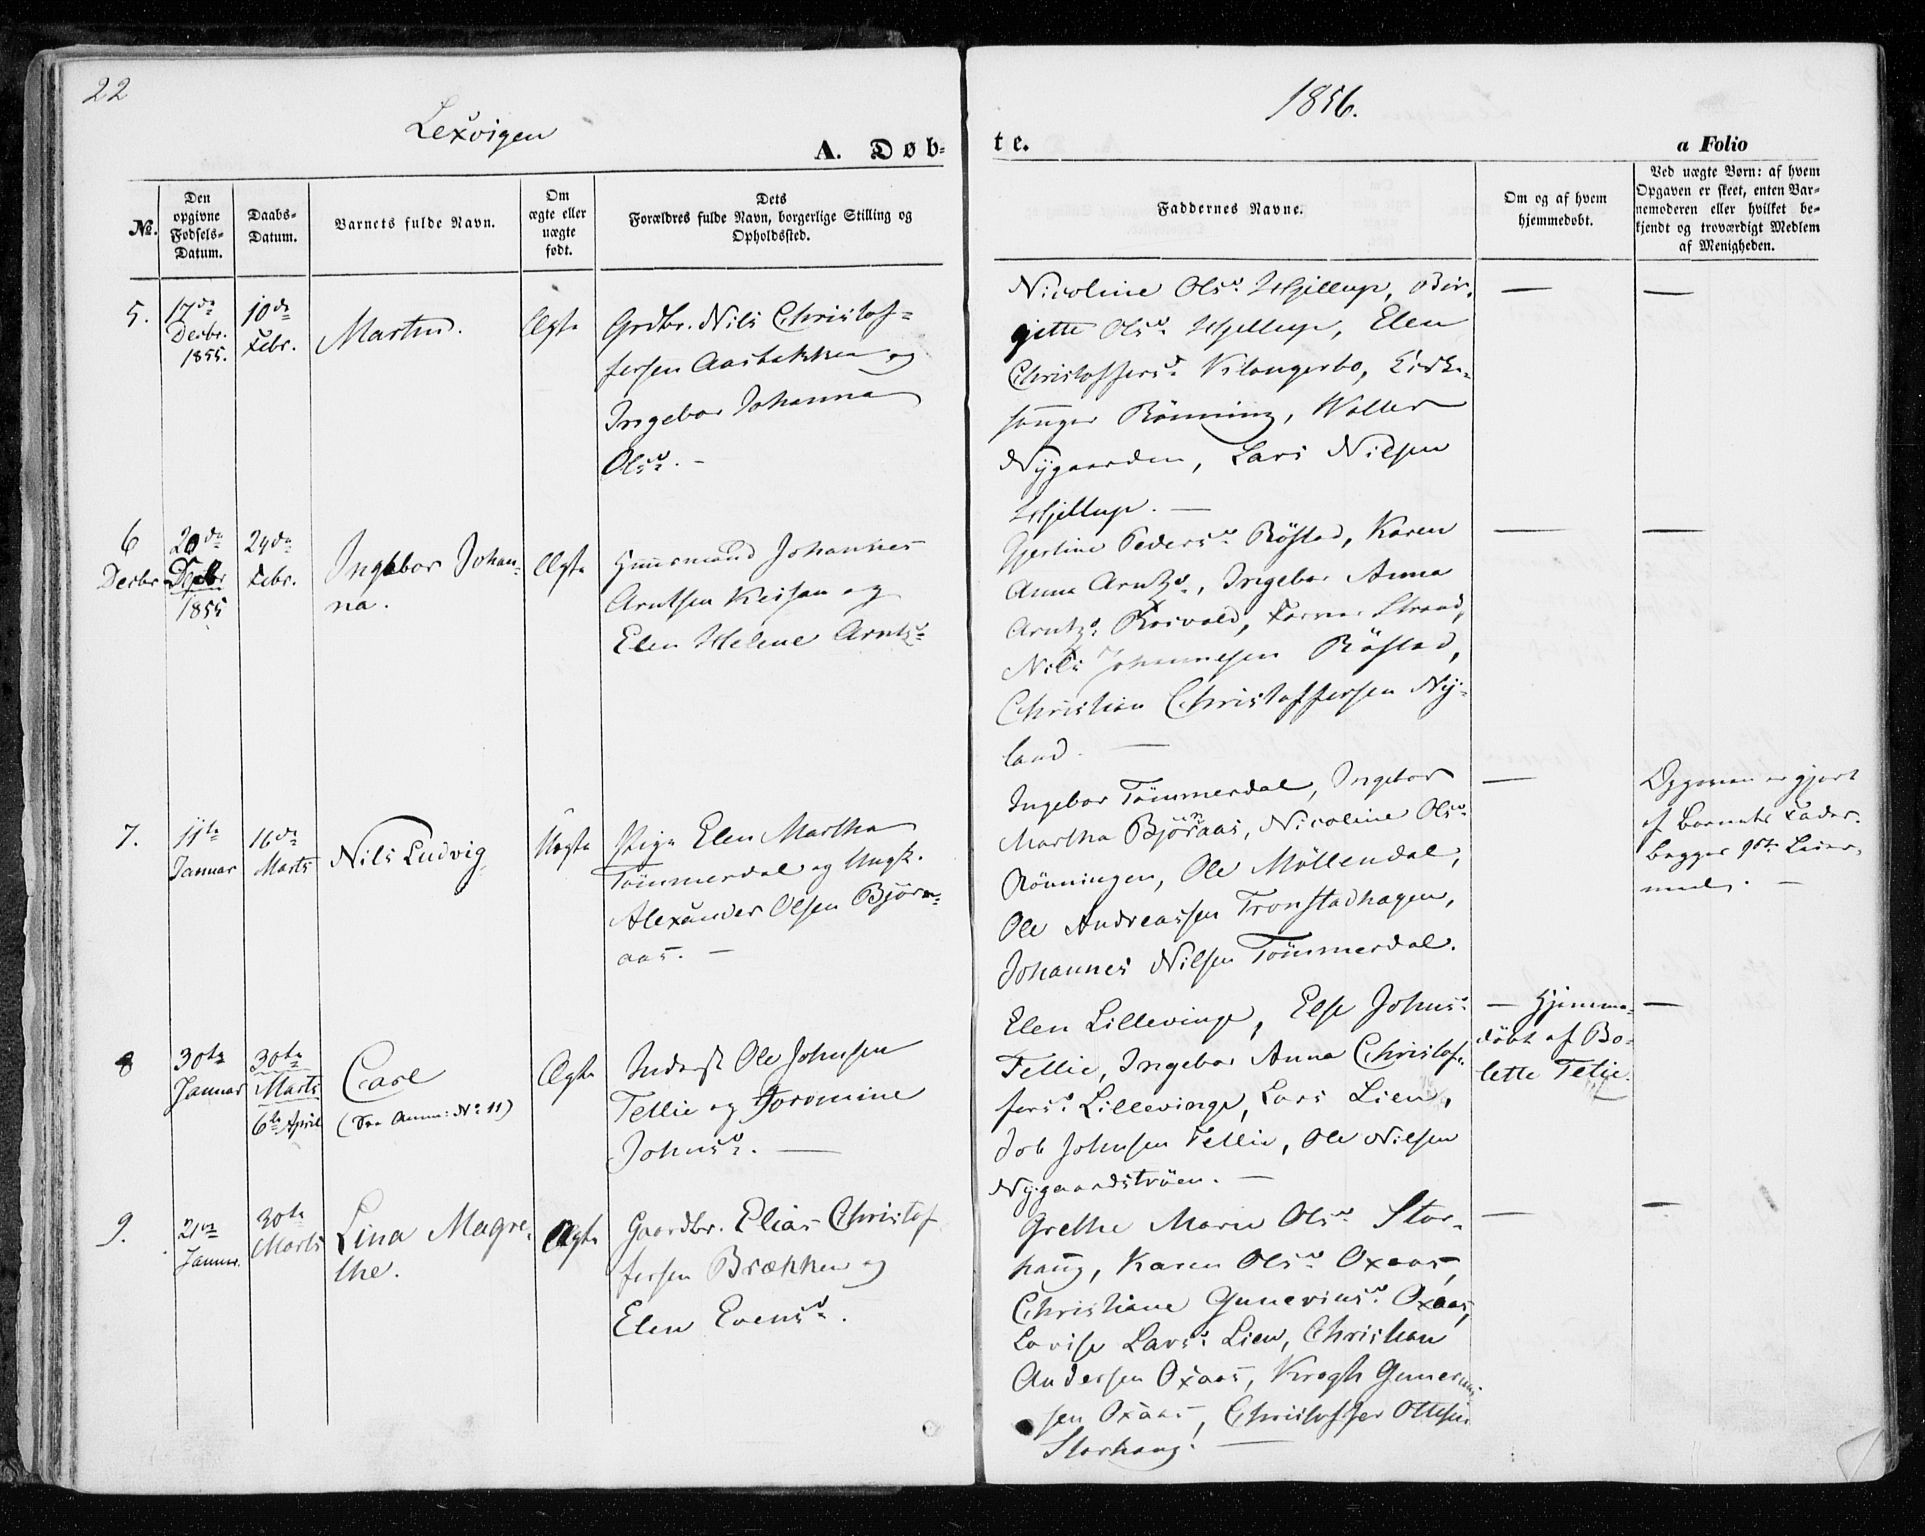 22
Lexvigen
1856.
A. Døb-
te.
a Folio
No.
Den opgivne Fødsels-Datum.
Daabs-Datum.
Barnets fulde Navn.
Om ægte eller uægte født.
Dets
Forældres fulde Navn, borgerlige Stilling og
Opholdssted.
Faddernes Navne.
Om og af hvem
hjemmedøbt.
Ved uægte Børn: af hvem
Opgaven er skeet, enten Bar-
nemoderen eller hvilket be-
kjendt og troværdigt Medlem
af Menigheden.
5.
17de
Decbr.
1855.
10de
Febr.
Martin.
Ægte
Grdbr. Nils Christof-
fersen Aasbakken og
Ingebor Johanna
Olsd. -
Nicoline Olsd. Hjellup, Bir-
gitte Olsd. Hjellup, Elen
Christoffersd. Kilangerbo, Kirke-
sanger Rönning,
Nygaarden, Lars Nilsen
Hjellup. -
—
—
6
Decbr
20de
Decbr
1855
24de
Febr.
Ingebor Johan-
na.
Ægte
Huusmand Johannes
Arntsen og
Elen Helene Arntzd.
Gjertine Pedersd. Röstad, Karen
Anna Arntzd., Ingebor Anna
Arntzd. Strand,
Nils Johannesen Röstad,
Christian Christoffersen Ny-
land. —
—
—
7.
11te
Januar
16de
Marts
Nils Ludvig
Uægte
Pige Elen Martha
Tömmerdal og Ungk.
Alexander Olsen Björn-
aas. —
Ingebor Tömmerdal, Ingebor
Martha Björnaas, Nicoline Olsd.
Rönningen, Ole Möllendal,
Ole Andreassen Tronstadhagen,
Johannes Nilsen Tömmerdal.
—
Opgaven er gjort
af Barnets Fader.
begges 1ste Leier-
maal. —
8
30te
Januar
30te
Marts
6te April
Carl
(See Anm: No 11)
Ægte
Inderst Ole Johnsen
Tellie og Joromine
Johnsd. —
Elen Lillevinge, Else Johnsd.
Tellie, Ingebor Anna Christof-
fersd. Lillevinge, Lars Lien,
Job Johnsen Tellie, Ole Nilsen
Nygaardströen. —
— Hjemme-
döbt af Bo-
lette Telie.
—
9.
21de
Januar.
30te
Marts
Lina Magre-
the.
Ægte
Gaardbr. Elias Christof-
fersen Brækken og
Elen Evensd.
Grethe Marie Olsd. Stor-
haug, Karen Olsd. Oxaas,
Christiane Gunneriusd. Oxaas,
Lovise Larsd. Lien, Christian
Andersen Oxaas, Krogh Gunnerius-
sen Oxaas, Christoffer Ottesen
Storhaug. —
—
—